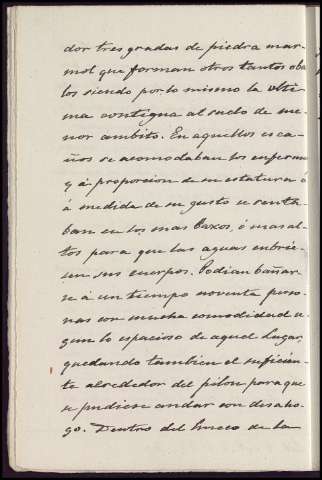 dor tres gradas de piedra mar-
mol que forman otros tantos oba
los siendo por lo mismo la ulti-
ma contigua al suelo de me-
nor ambito. En aquellos esca-
ños se acomodaban los enfermos
y á proporcion de su estatura ó
á medida de su gusto se senta-
ban en los mas baxos, ó mas al-
tos para que las aguas cubrie-
sen sus cuerpos. Podian bañar-
se á un tiempo noventa perso-
nas con mucha comodidad se-
gun lo espacioso de aquel lugar,
quedando tambien el suficien-
te alrededor del pilon para que
se pudiese andar con desaho-
go. Dentro del hueco de la